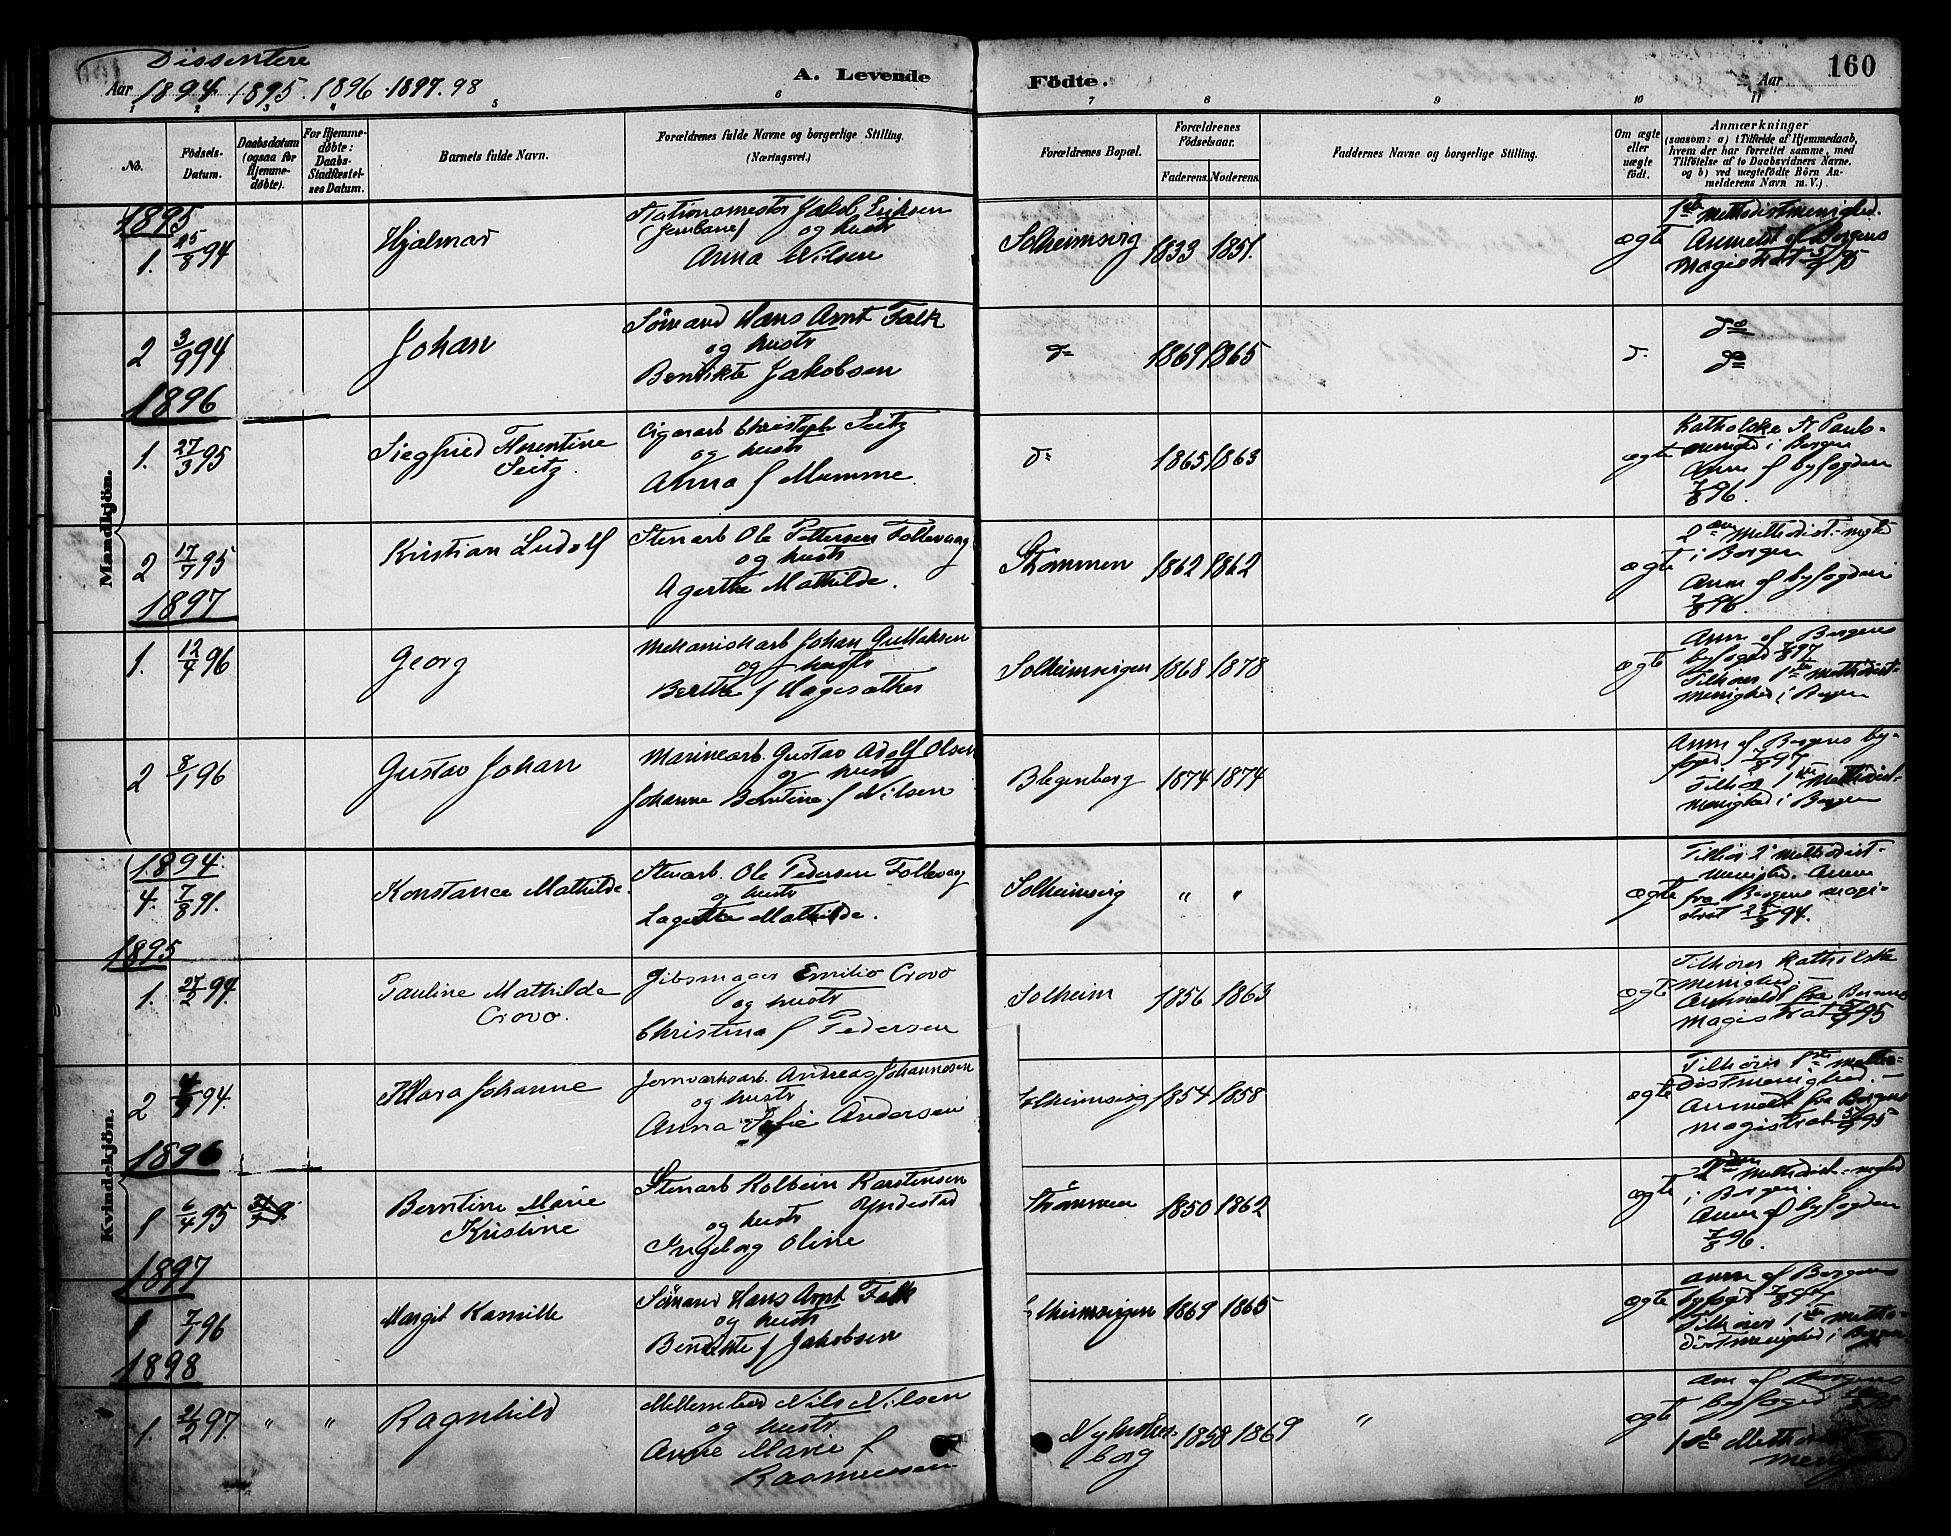 Dissentere
Aar 1894. 1895. 1896. 1897. 98
A. Levende Födte.
Aar
160
1 2 3 4 5 6 7 8 9 10 11
No.
Födsels-Datum.
Daabsdatum (ogsaa for Hjemmedöbte).
For Hjemmedöbte: Daabs-Stadfæstelses Datum.
Barnets fulde Navn.
Forældrenes fulde Navne og borgerlige Stilling. (Næringsvei.)
Forældrenes Bopæl.
Forældrenes Födselsaar.
Faderens. Moderens.
Faddernes Navne og borgerlige Stilling.
Om ægte eller uægte födt.
Anmærkninger
(saasom: a) i Tilfælde af Hjemmedaab, hvem der har forrettet samme, med Tilföielse af to Daabsvidners Navne. og b) ved uægtefödte Börn Anmelderens Navn m. V.)
Mandkjön.
1895
1. 15/8 94 Hjalmar
Stationsmester Jakob Eriksen
(Jernbane) og hustr
Anna Nilsen
Solheimsvig 1833 1851. ægte
1ste Methodistmenighed.
Anmeldt af Bergens
Magistrat 95
2 3/9 94 Johan
Sömand Hans Arnt Falk
og hustr
Bendikte Jakobsen
do 1869 1865 do
do
do
1896
1. 27/3 95 Siegfried Florentine
Seitz.
Cigararb Christoph Seitz
og hustr
Anna f Mumme.
do 1865 1863 ægte
Katholske St Pauls-
menighed i Bergen
Anm af byfogden
7/8 96.
2 17/7 95 Kristian Ludolf
Stenarb Ole Pettersen Follevaag
og hustr
Agerthe Mathilde.
Strömmen 1862 1862 ægte
2den Methodist-mghd
i Bergen
Anm af byfogden
7/8 96.
1897
1. 12/4 96 Georg
Mekaniskarb Johan Gullaksen
og hustr
Berthe f Hagesæther
Solheimsvigen 1868 1878 ægte
Anm af Bergens
byfoged 7/8 97
Tilhörer 1ste Methodist-
menighed i Bergen
2 8/1 96 Gustav Johan
Marinearb. Gustav Adolf Olsen
og hustr
Johanne Berntine f Nilsen
Blegenberg 1874 1874
Anm af Bergens by-
foged 7/8 97
Tilhör 1ste Methodist-
menighed i Bergen
Kvindekjön.
1894.
4. 7/8 91. Konstance Mathilde.
Stenarb. Ole Pedersen Follevaag
og hustr
Lagerthe Mathilde.
Solheimsvig " " ægte
Tilhör 2' Methodist-
menighed. Anm
fra Bergens magi-
strat 94.
1895
1. 27/2 94. Pauline Mathilde
Crovo.
Gibsmager Emilio Crovo
og hustr
Christina f Pedersen
Solheim 1856 1863 ægte
Tilhörer katholske
menighed
Anmeldt fra Bergens
magistrat 95
2 94. Klara Johanne
Jernværksarb. Andreas Johannesen
og hustr
Anna Sofie Andersen
Solheimsvig 1854 1858 ægte
Tilhörer 1ste metho-
distmenighed.
Anmeldt fra Bergens
magistrat 95
1896
1 6/4 95 Berntine Marie
Kristine
Stenarb Kolbein Karstensen
og hustr Yndestad
Ingeborg Oline
Strömmen 1850 1862 ægte
2den Methodist-mghed
i Bergen.
Anm af byfogden
7/8 96.
1897
1 7/1 96 Margit Kamille
Sömand Hans Arnt Falk
og hustr
Bendikte f Jakobsen
Solheimsvigen 1869 1865 ægte
anm af Bergens
byfogd 7/8 97
Tilhörer 1ste metho-
distmenighed i Bergen.
1898
1. 97. " " Ragnhild
Nils Nilsen
og hustr
Anne Marie f
Rasmussen
Nyholms-
borg 1858 1869 " ægte
Anm af Bergens
byfoged 98
1ste Methodist
menighed